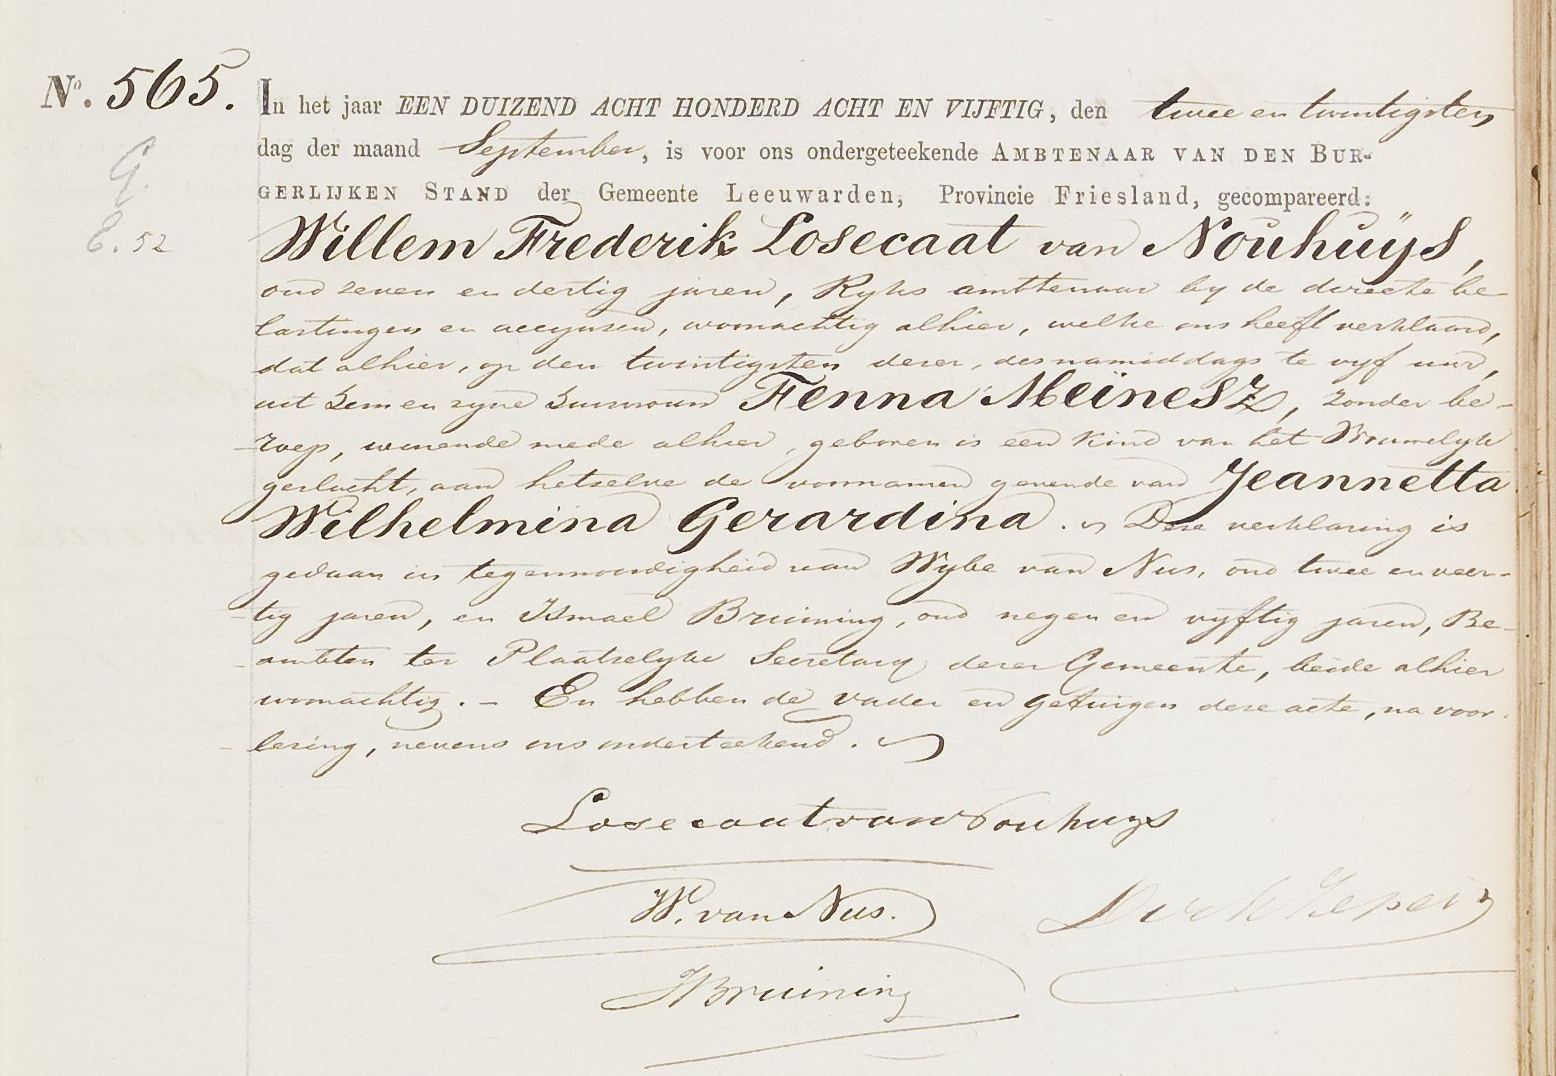 No. 565.
In het jaar EEN DUIZEND ACHT HONDERD ACHT EN VIJFTIG, den twee en twintigsten
dag der maand September, is voor ons ondergeteekende AMBTENAAR VAN DEN BUR-
GERLIJKEN STAND der Gemeente Leeuwarden, Provincie Friesland, gecompareerd:
E. 52
Willem Frederik Losecaat van Nouhuÿs,
oud zeven en dertig jaren, Ryks ambtenaar by de directe be-
lastingen en accynsen, woonachtig alhier, welke ons heeft verklaard,
dat alhier, op den twintigsten dezer, des namiddags te vyf uur,
uit hem en zyne huisvrouw Fenna Meïnesz, zonder be-
roep, wonende mede alhier, geboren is een kind van het Vrouwelyk
geslacht, aan hetzelve de voornamen gevende van Jeannetta
Wilhelmina Gerardina. Deze verklaring is
gedaan in tegenwoordigheid van Wybe van Nus, oud twee en veer-
tig jaren, en Ismael Bruining, oud negen en vyftig jaren, Be-
ambten ter Plaatselyke Secretary dezer Gemeente, beide alhier
woonachtig. - En hebben de vader en getuigen deze acte, na voor-
lezing, nevens ons onderteekend.
Losecaat van Nouhuys
W. van Nus.
Dirk Zeper
IBruining